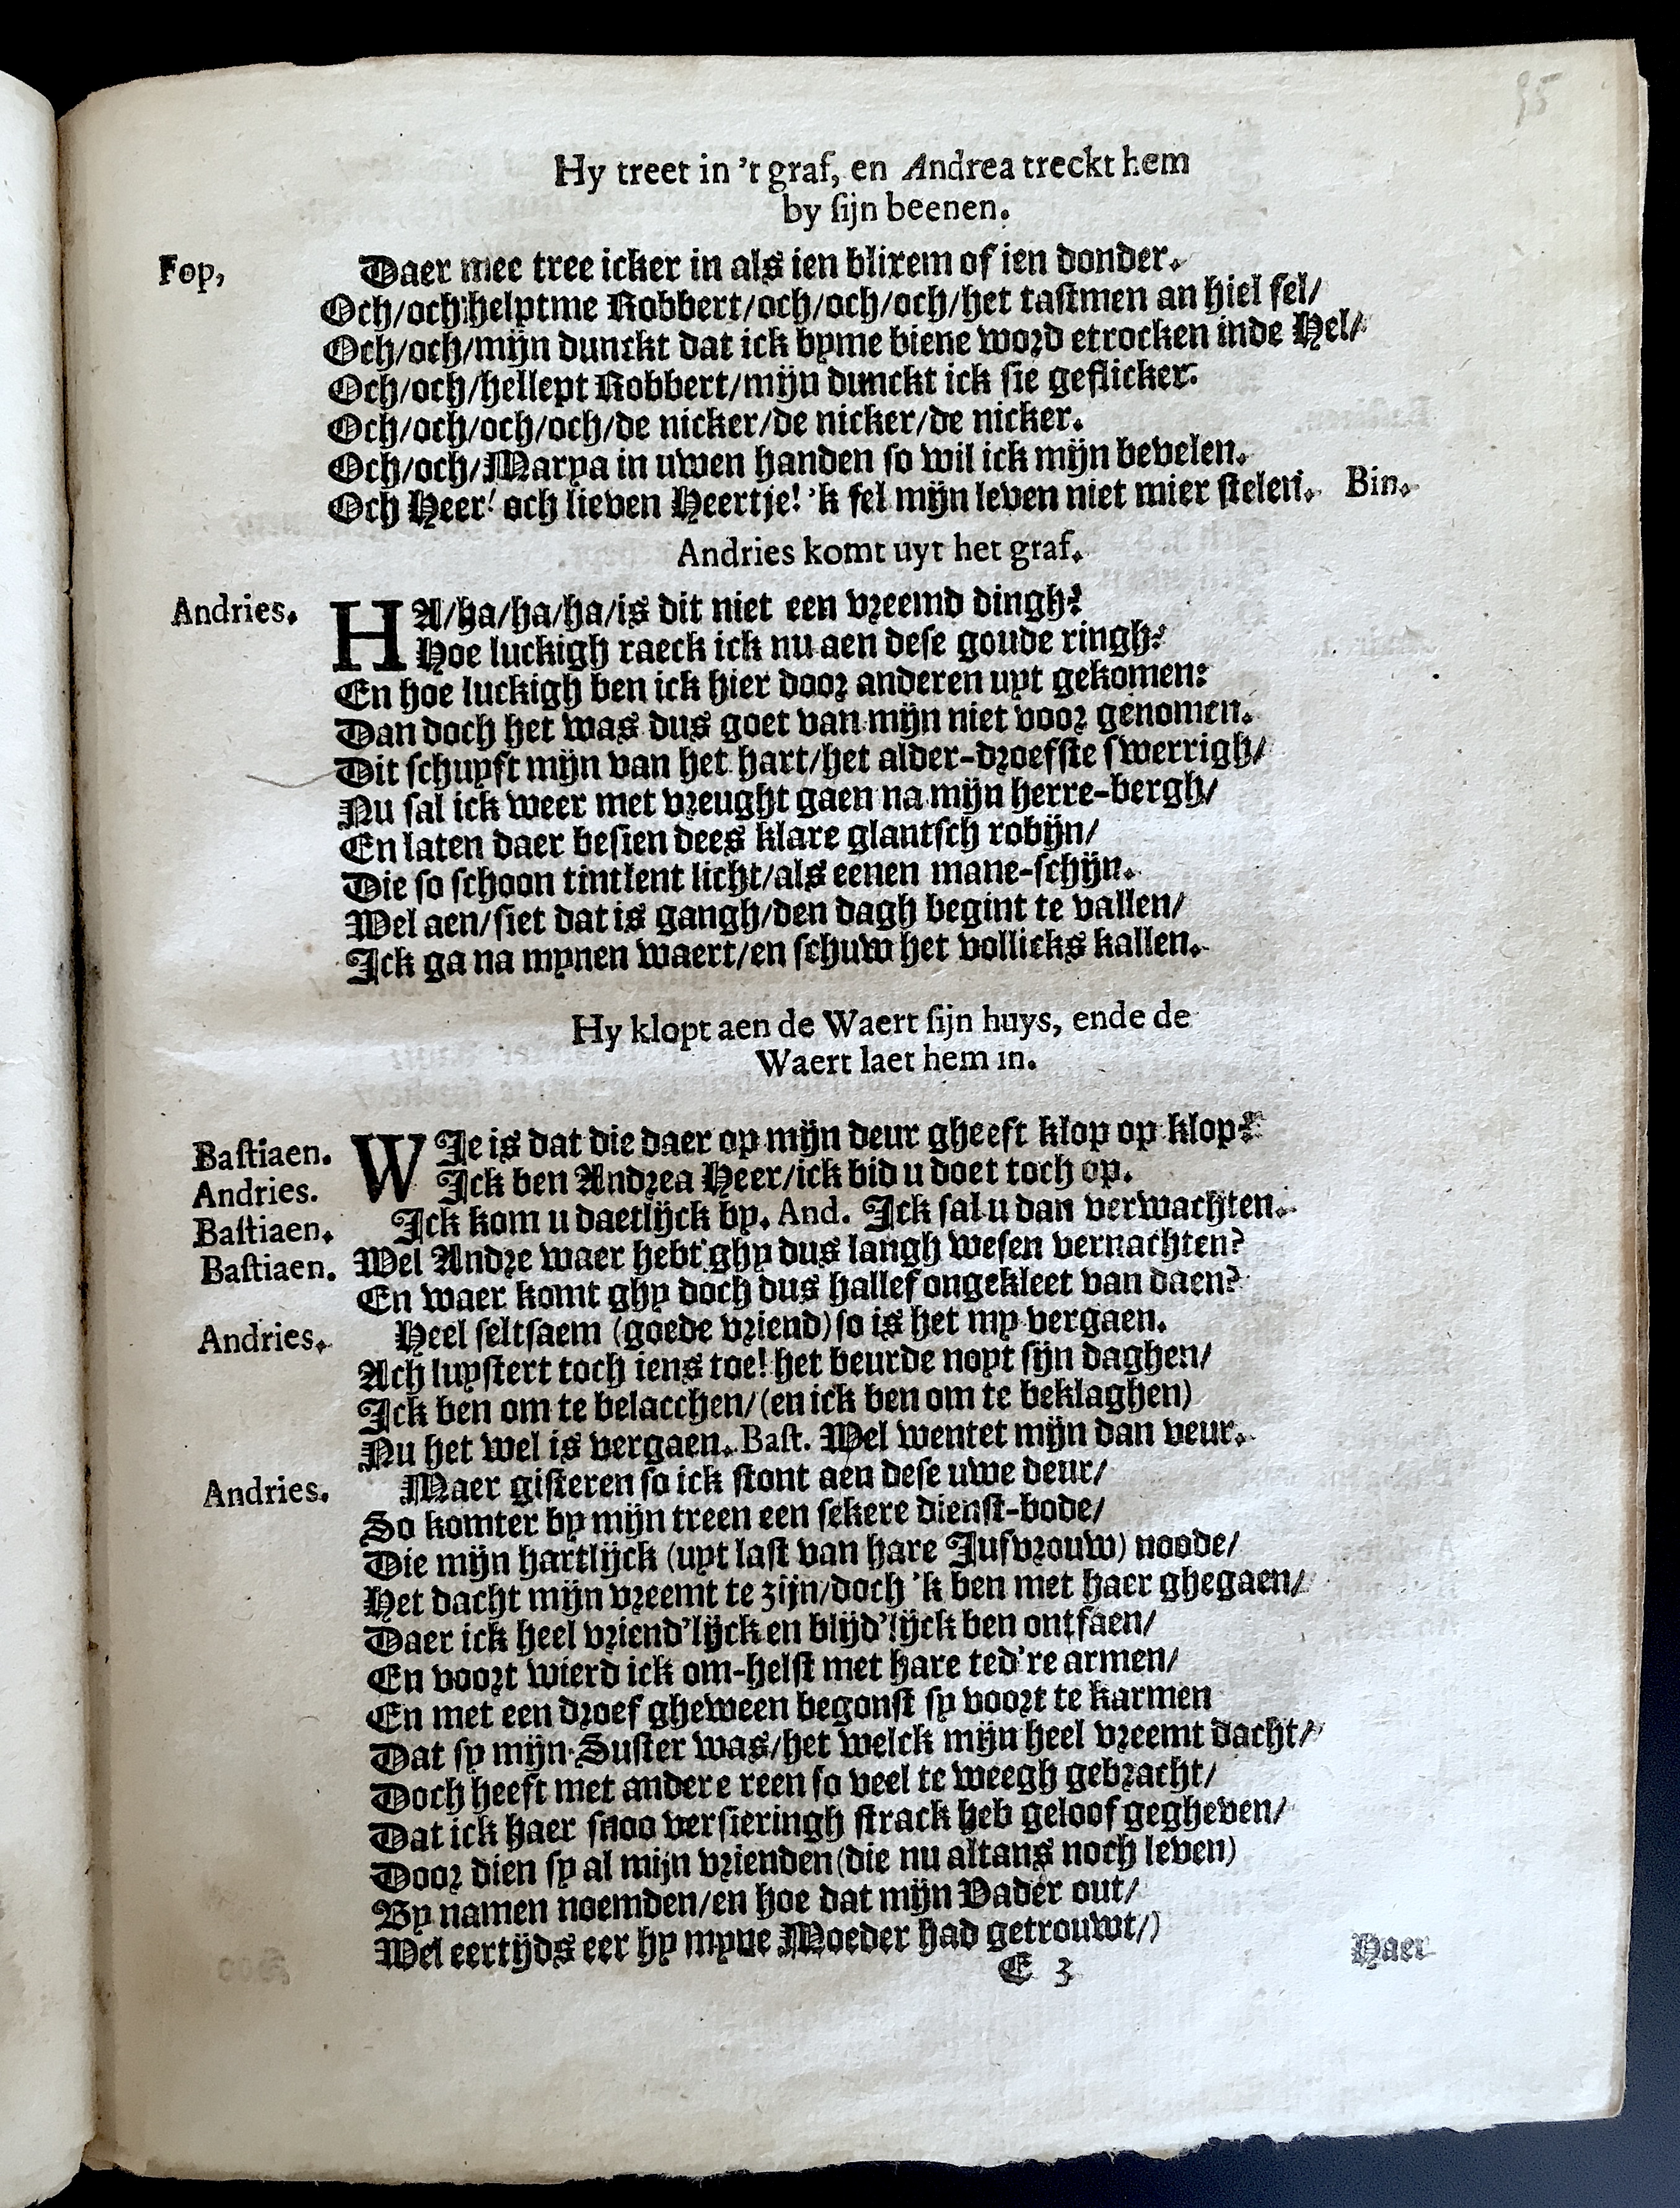 35
Hy treet in 't graf, en Andrea treckt hem
by ſijn beenen.
Fop, Daer mee tree icker in als ien blixem of ien donder.
Och/och helptme Robbert/och/och/och/het taſtmen an hiel fel/
Och/och/mijn dunckt dat ick byme biene word etrocken inde Hel/
Och/och/hellept Robbert/mijn dunckt ick ſie geflicker.
Och/och/och/och/de nicker/de nicker/de nicker.
Och/och/Marya in uwen handen ſo wil ick mijn bevelen.
Och Heer! och lieven Heertje! 'k ſel mijn leven niet mier ſtelen. Bin.
Andries komt uyt het graf.
Andries. HA/ha/ha/ha/is dit niet een vreemd dingh?
Hoe luckigh raeck ick nu aen deſe goude ringh?
En hoe luckigh ben ick hier door anderen uyt gekomen:
Dan doch het was dus goet van mijn niet voor genomen.
Dit ſchuyft mijn van het hart/het alder-droefſte ſwerrigh/
Nu ſal ick weer met vreught gaen na mijn herre-bergh/
En laten daer beſien dees klare glantſch robijn/
Die ſo ſchoon tintlent licht/als eenen mane-ſchijn.
Wel aen/ſiet dat is gangh/den dagh begint te vallen/
Ick ga na mynen waert/en ſchuw het vollicks kallen.
Hy klopt aen de Waert ſijn huys, ende de
Waert laet hem in.
Baſtiaen. WIe is dat die daer op mijn deur gheeft klop op klop?
Andries. Ick ben Andrea Heer/ick bid u doet toch op.
Baſtiaen. Ick kom u daetlijck by. And. Ick ſal u dan verwachten.
Baſtiaen. Wel Andre waer hebt ghy dus langh weſen vernachten?
En waer komt ghy doch dus hallef ongekleet van daen?
Andries. Heel ſeltſaem (goede vriend) ſo is het my vergaen.
Ach luyſtert toch iens toe! het beurde noyt ſijn daghen/
Ick ben om te belacchen/(en ick ben om te beklaghen)
Nu het wel is vergaen. Baſt. Wel wentet mijn dan veur.
Andries. Maer giſteren ſo ick ſtont aen deſe uwe deur/
So komter by mijn treen een ſekere dienſt-bode/
Die mijn hartlijck (uyt laſt van hare Jufvrouw) noode/
Het dacht mijn vreemt te zijn/doch 'k ben met haer ghegaen/
Daer ick heel vriend'lijck en blijd'lijck ben ontfaen/
En voort wierd ick om-helſt met hare ted're armen/
En met een droef gheween begonſt ſy voort te karmen
Dat ſy mijn Suſter was/het welck mijn heel vreemt dacht/
Doch heeft met andere reen ſo veel te weegh gebracht/
Dat ick haer ſnoo verſieringh ſtrack heb geloof gegheven/
Door dien ſy al mijn vrienden (die nu altans noch leven)
By namen noemden/en hoe dat mijn Vader out/
Wel eertijds eer hy myne Moeder had getrouwt/)
E 3 Haer